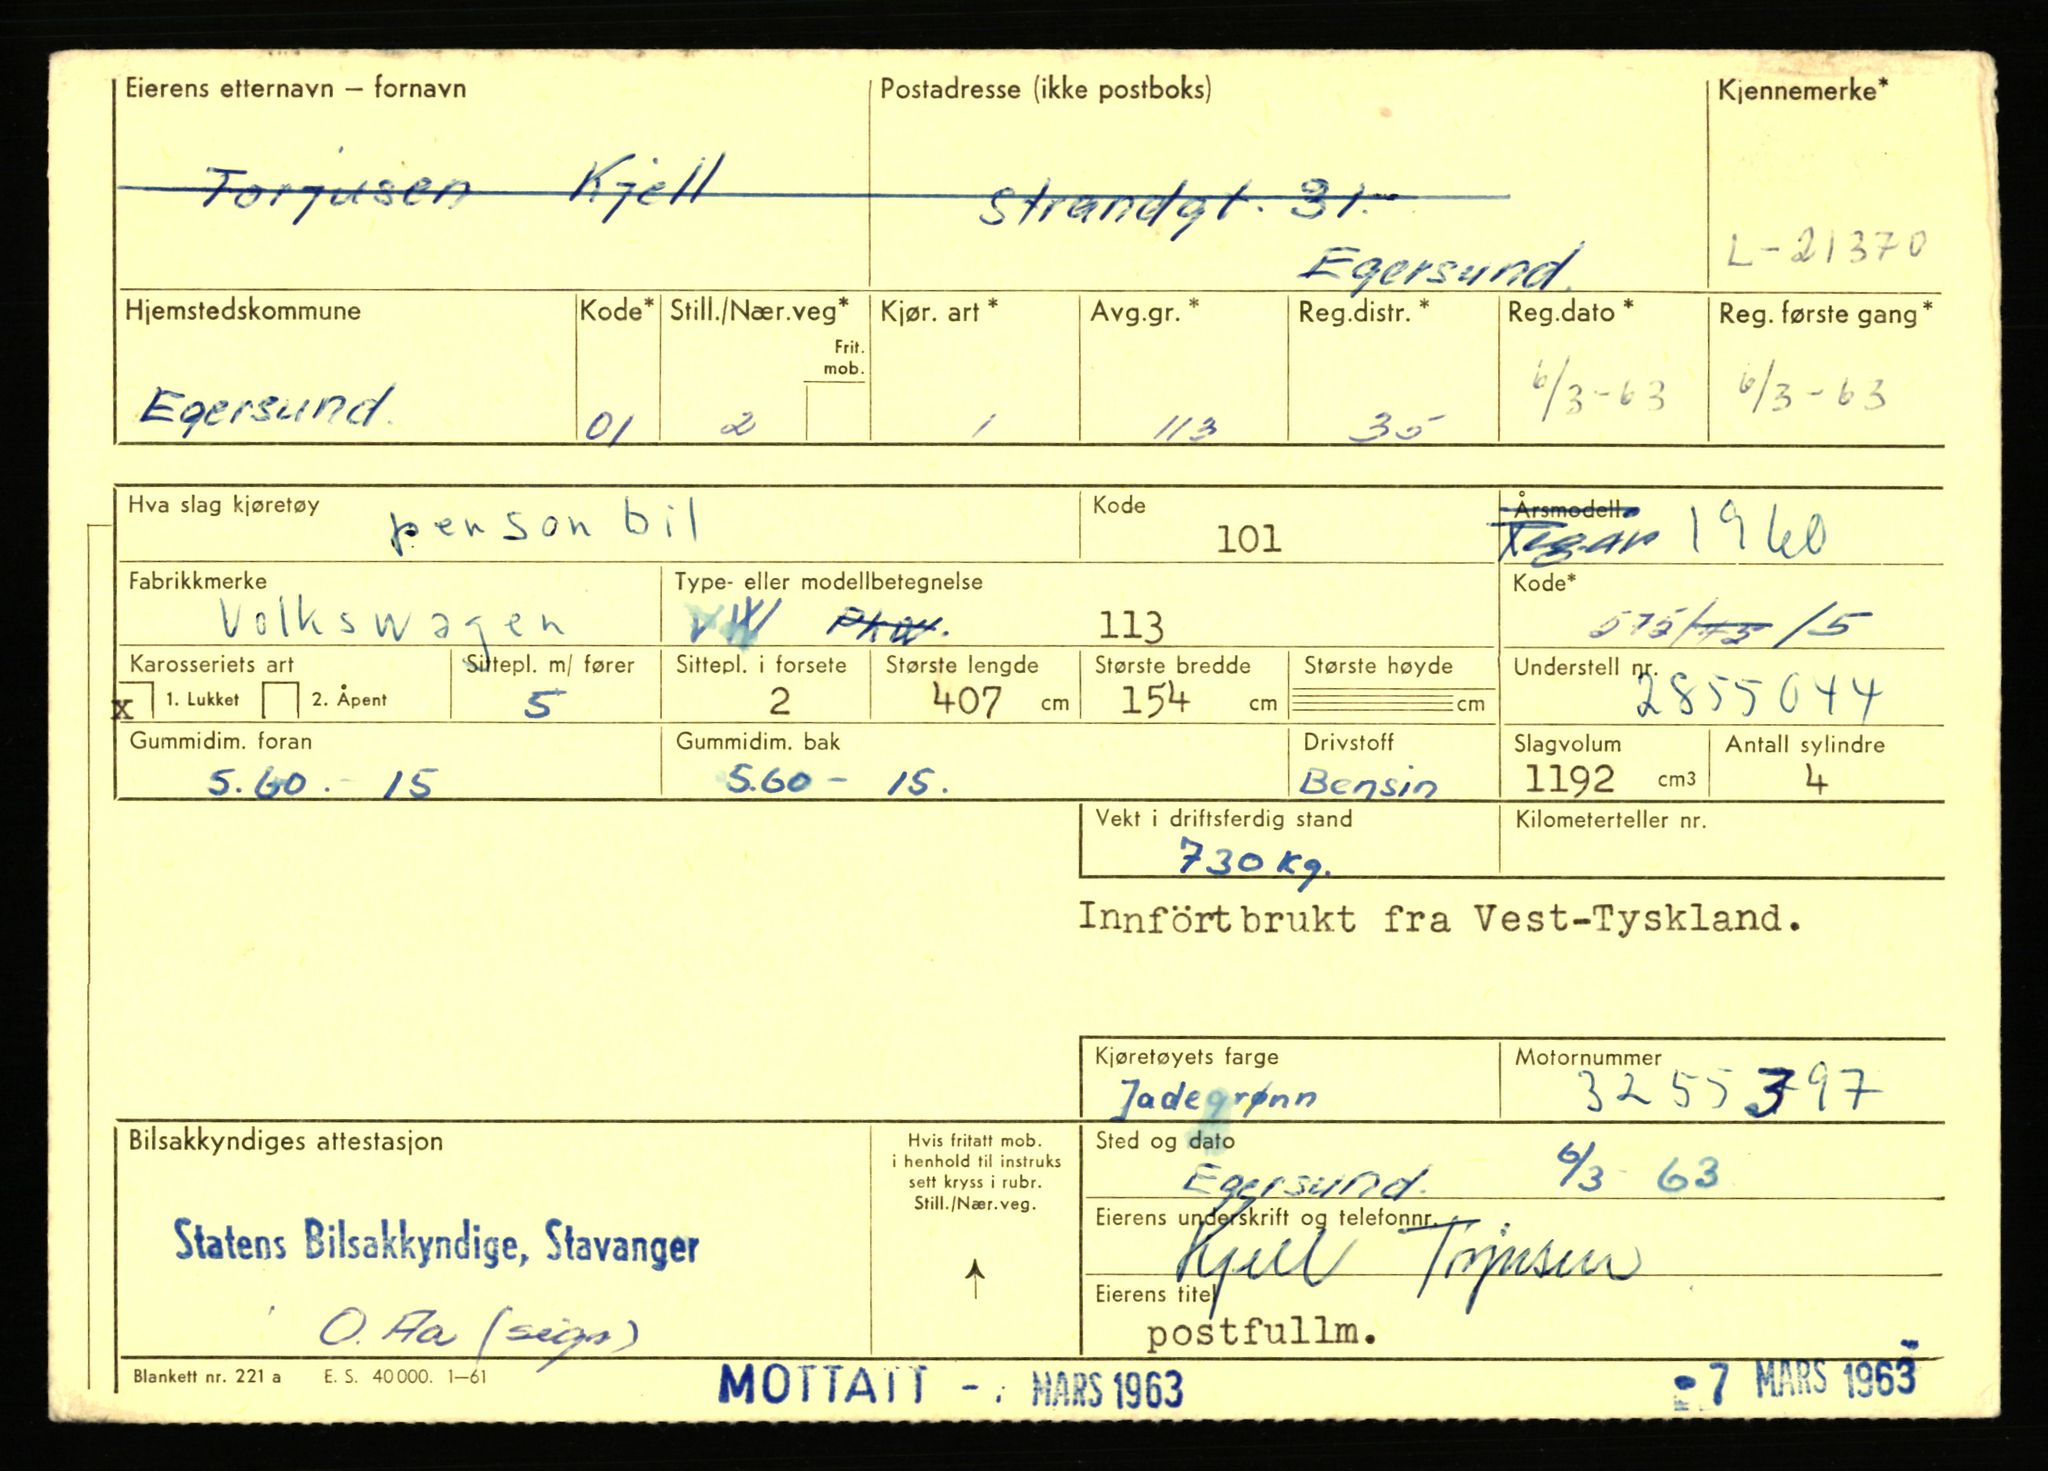 Eierens etternavn – fornavn
Torjusen Kjell
Postadresse (ikke postboks)
Strandgt. 31.
Egersund.
Kjennemerke*
L-21370
Hjemstedskommune
Egersund.
Kode*
01
Still./Nær.veg*
Frit.
mob.
2
Kjør. art*
1
Avg.gr.*
113
Reg.distr.*
35
Reg.dato*
6/3-63
Reg. første gang*
6/3-63
Hva slag kjøretøy
personbil
Kode
101
Årsmodell
Reg.år 1960
Fabrikkmerke
Volkswagen
Type- eller modellbetegnelse
VW PKW. 113
Kode*
575/ /5
Karosseriets art
x 1. Lukket 2. Åpent
Sittepl. m/ fører
5
Sittepl. i forsete
2
Største lengde
407 cm
Største bredde
154 cm
Største høyde
cm
Understell nr.
2855044
Gummidim. foran
5.60.- 15
Gummidim. bak
5.60- 15.
Drivstoff
Bensin
Slagvolum
1192 cm3
Antall sylindre
4
Vekt i driftsferdig stand
730 kg.
Kilometerteller nr.
Innfört brukt fra Vest-Tyskland.
Kjøretøyets farge
Jadegrønn
Motornummer
3255397
Bilsakkyndiges attestasjon
Statens Bilsakkyndige, Stavanger
O. Aa (sign)
Hvis fritatt mob.
i henhold til instruks
sett kryss i rubr.
Still./Nær.veg.
Sted og dato
Egersund. 6/3-63
Eierens underskrift og telefonnr.
Kjell Torjusen
Eierens titel
postfullm.
Blankett nr. 221 a E. S. 40000. 1–61
MOTTATT - MARS 1963
7 MARS 1963